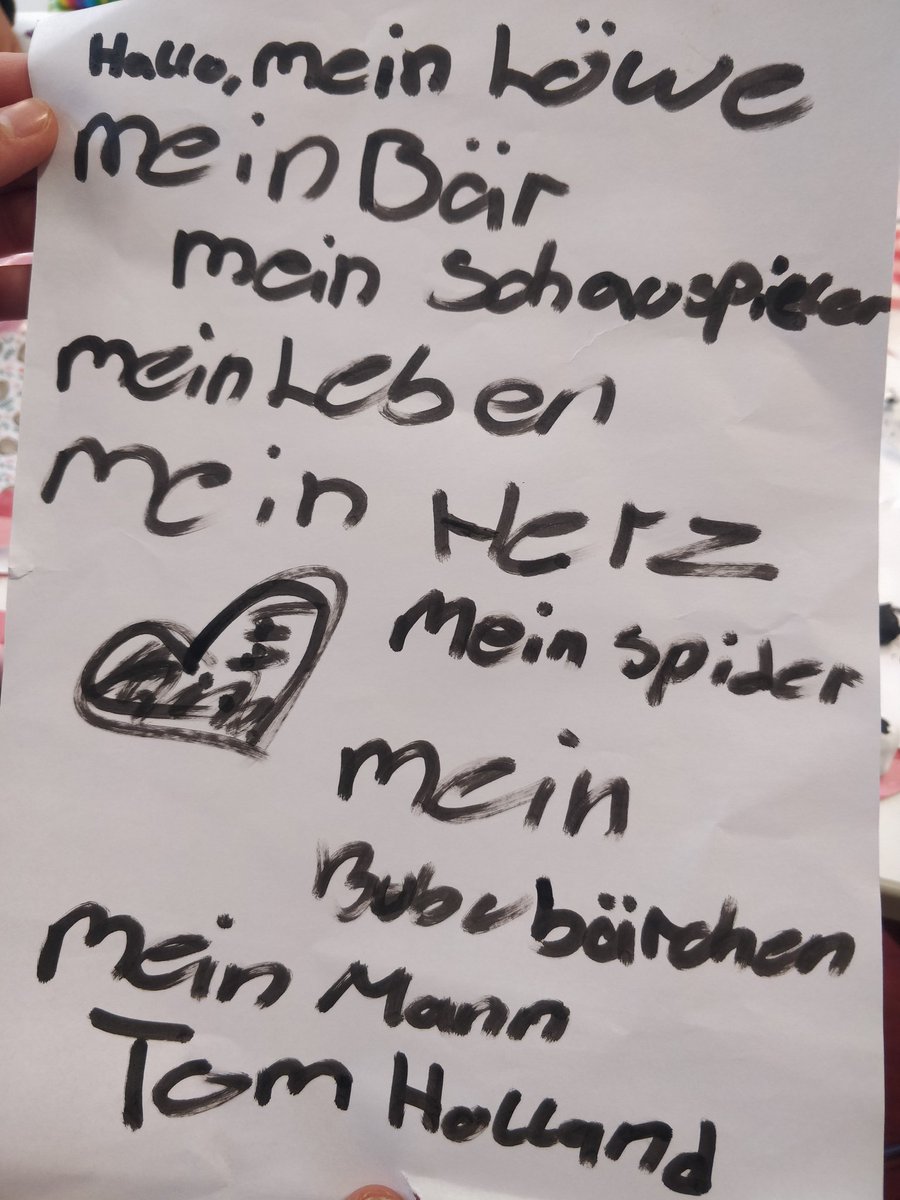 Hallo, mein Löwe
mein Bär
mein Schauspieler
mein Leben
mein Herz
Mein spider
mein
Bubu bärchen
Mein Mann
Tom Holland